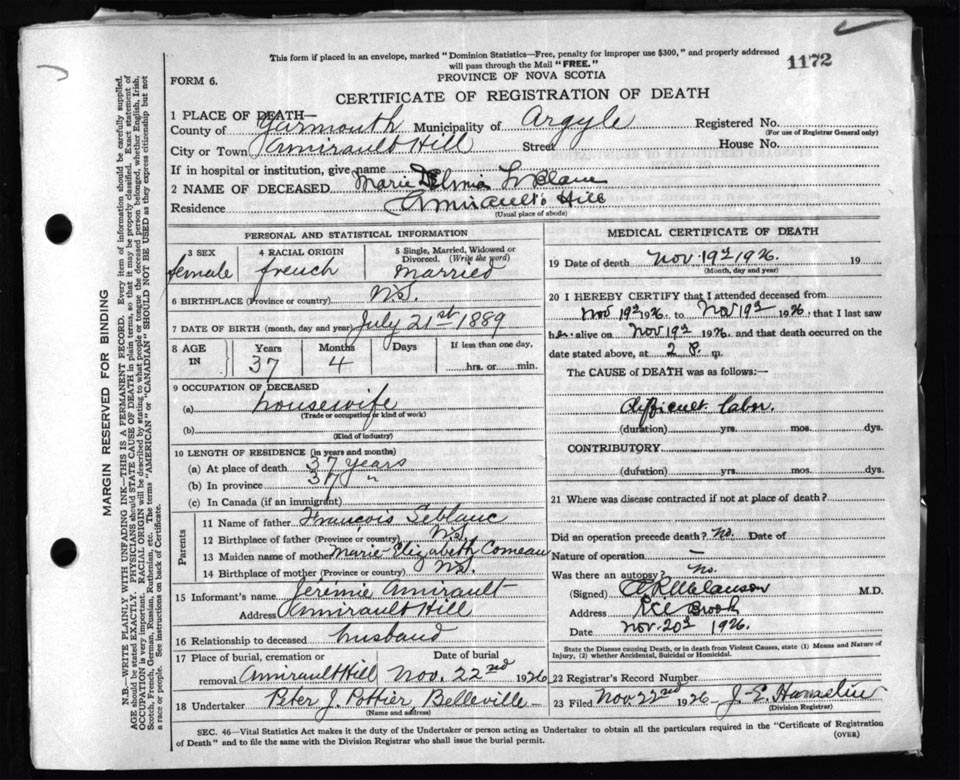 This form if placed in an envelope, marked "Dominion Statistics—Free, penalty for improper use $300," and properly addressed
will pass through the Mail "FREE."
1172
PROVINCE OF NOVA SCOTIA
FORM 6.
CERTIFICATE OF REGISTRATION OF DEATH
1 PLACE OF DEATH—
County of Yarmouth Municipality of Argyle Registered No.
(For use of Registrar General only)
City or Town Amirault Hill Street House No.
If in hospital or institution, give name
2 NAME OF DECEASED Marie LeBlanc
Residence Amirault's Hill
(Usual place of abode)
PERSONAL AND STATISTICAL INFORMATION
3 SEX female
4 RACIAL ORIGIN french
5 Single, Married, Widowed or Divorced. (Write the word) married
6 BIRTHPLACE (Province or country) N.S.
7 DATE OF BIRTH (month, day and year) July 21st 1889
8 AGE IN Years 37 Months 4 Days If less than one day, hrs. or min.
9 OCCUPATION OF DECEASED
(a) housewife
(Trade or occupation or kind of work)
(b)
(Kind of industry)
10 LENGTH OF RESIDENCE (in years and months)
(a) At place of death 37 years
(b) In province 37 "
(c) In Canada (if an immigrant)
Parents
11 Name of father François Leblanc
12 Birthplace of father (Province or country) N.S.
13 Maiden name of mother Marie-Elizabeth Comeau
14 Birthplace of mother (Province or country) N.S.
15 Informant's name Jérémie Amirault
Address Amirault Hill
16 Relationship to deceased husband
17 Place of burial, cremation or removal Amirault Hill
Date of burial Nov. 22nd 1926
18 Undertaker Peter J. Pottier, Belleville
(Name and address)
MEDICAL CERTIFICATE OF DEATH
19 Date of death Nov. 19th 1926. 19
(Month, day and year)
20 I HEREBY CERTIFY that I attended deceased from
Nov 19th 1926 to Nov 19th 1926, that I last saw
her alive on Nov 19th 1926, and that death occurred on the
date stated above, at 2 P. m.
The CAUSE of DEATH was as follows:—
difficult labor.
(duration) yrs. mos. dys.
CONTRIBUTORY
(duration) yrs. mos. dys.
21 Where was disease contracted if not at place of death?
Did an operation precede death? No. Date of
Nature of operation —
Was there an autopsy? No.
(Signed) M.D.
Address Brook
Date Nov. 20th 1926.
State the Disease causing Death, or in death from Violent Causes, state (1) Means and Nature of
Injury, (2) whether Accidental, Suicidal or Homicidal.
22 Registrar's Record Number
23 Filed Nov 22nd 1926 J. E.
(Division Registrar)
SEC. 46—Vital Statistics Act makes it the duty of the Undertaker or person acting as Undertaker to obtain all the particulars required in the "Certificate of Registration
of Death" and to file the same with the Division Registrar who shall issue the burial permit.
(OVER)
MARGIN RESERVED FOR BINDING
N.B.—WRITE PLAINLY WITH UNFADING INK—THIS IS A PERMANENT RECORD. Every item of information should be carefully supplied.
AGE should be stated EXACTLY. PHYSICIANS should STATE CAUSE OF DEATH in plain terms, so that it may be properly classified. Exact statement of
OCCUPATION is very important. RACIAL ORIGIN will be described by stating to what people or tongue the deceased person belonged, whether English, Irish,
Scotch, French, German, Russian, Ruthenian, etc. The terms "AMERICAN" or "CANADIAN" SHOULD NOT BE USED as they express citizenship but not
a race or people. See instructions on back of Certificate.